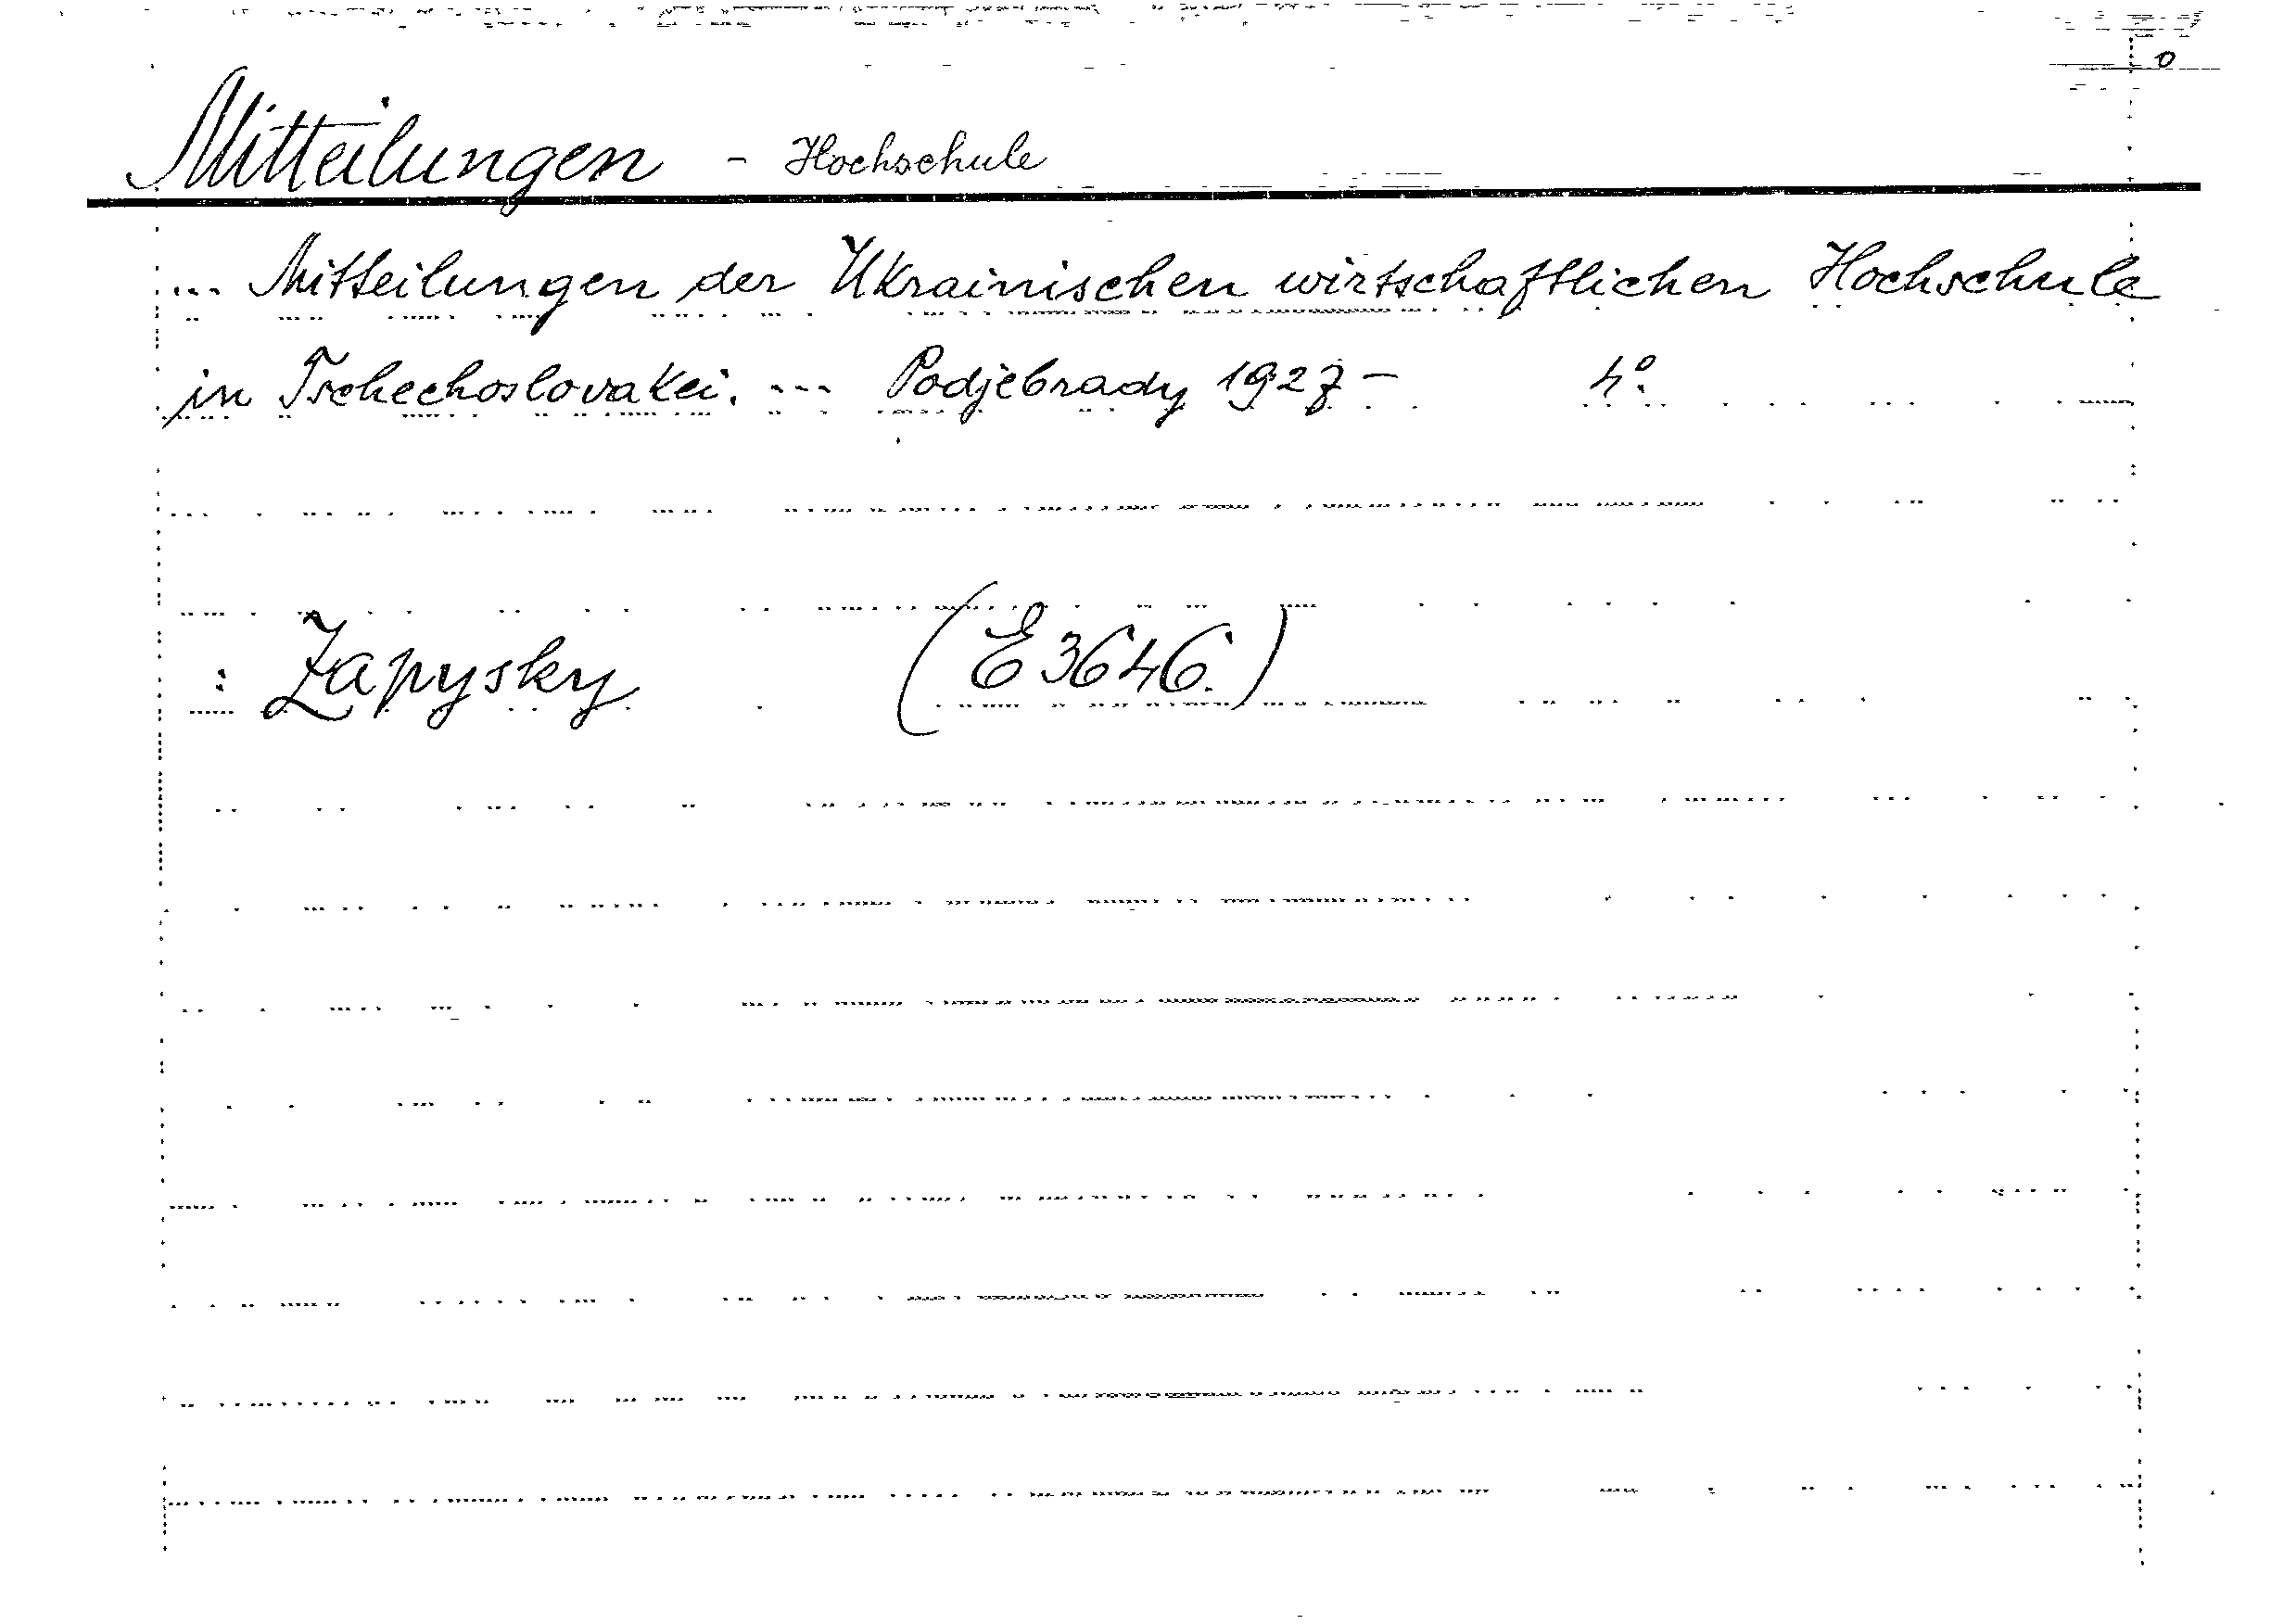 Mitteilungen - Hochschule
... Mitteilungen der Ukrainischen wirtschaftlichen Hochschule
in Tschechoslovakei. --- Podjebrady 1927 - 4°.
: Zapysky (E 3646.)